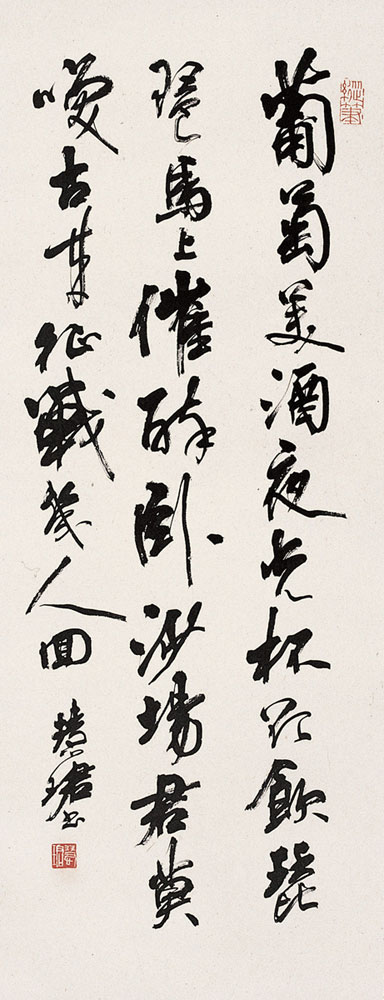 葡萄美酒夜光杯欲飲琵
琶馬上催醉臥沙場君莫
咲古来征戰幾人回
慧珺书